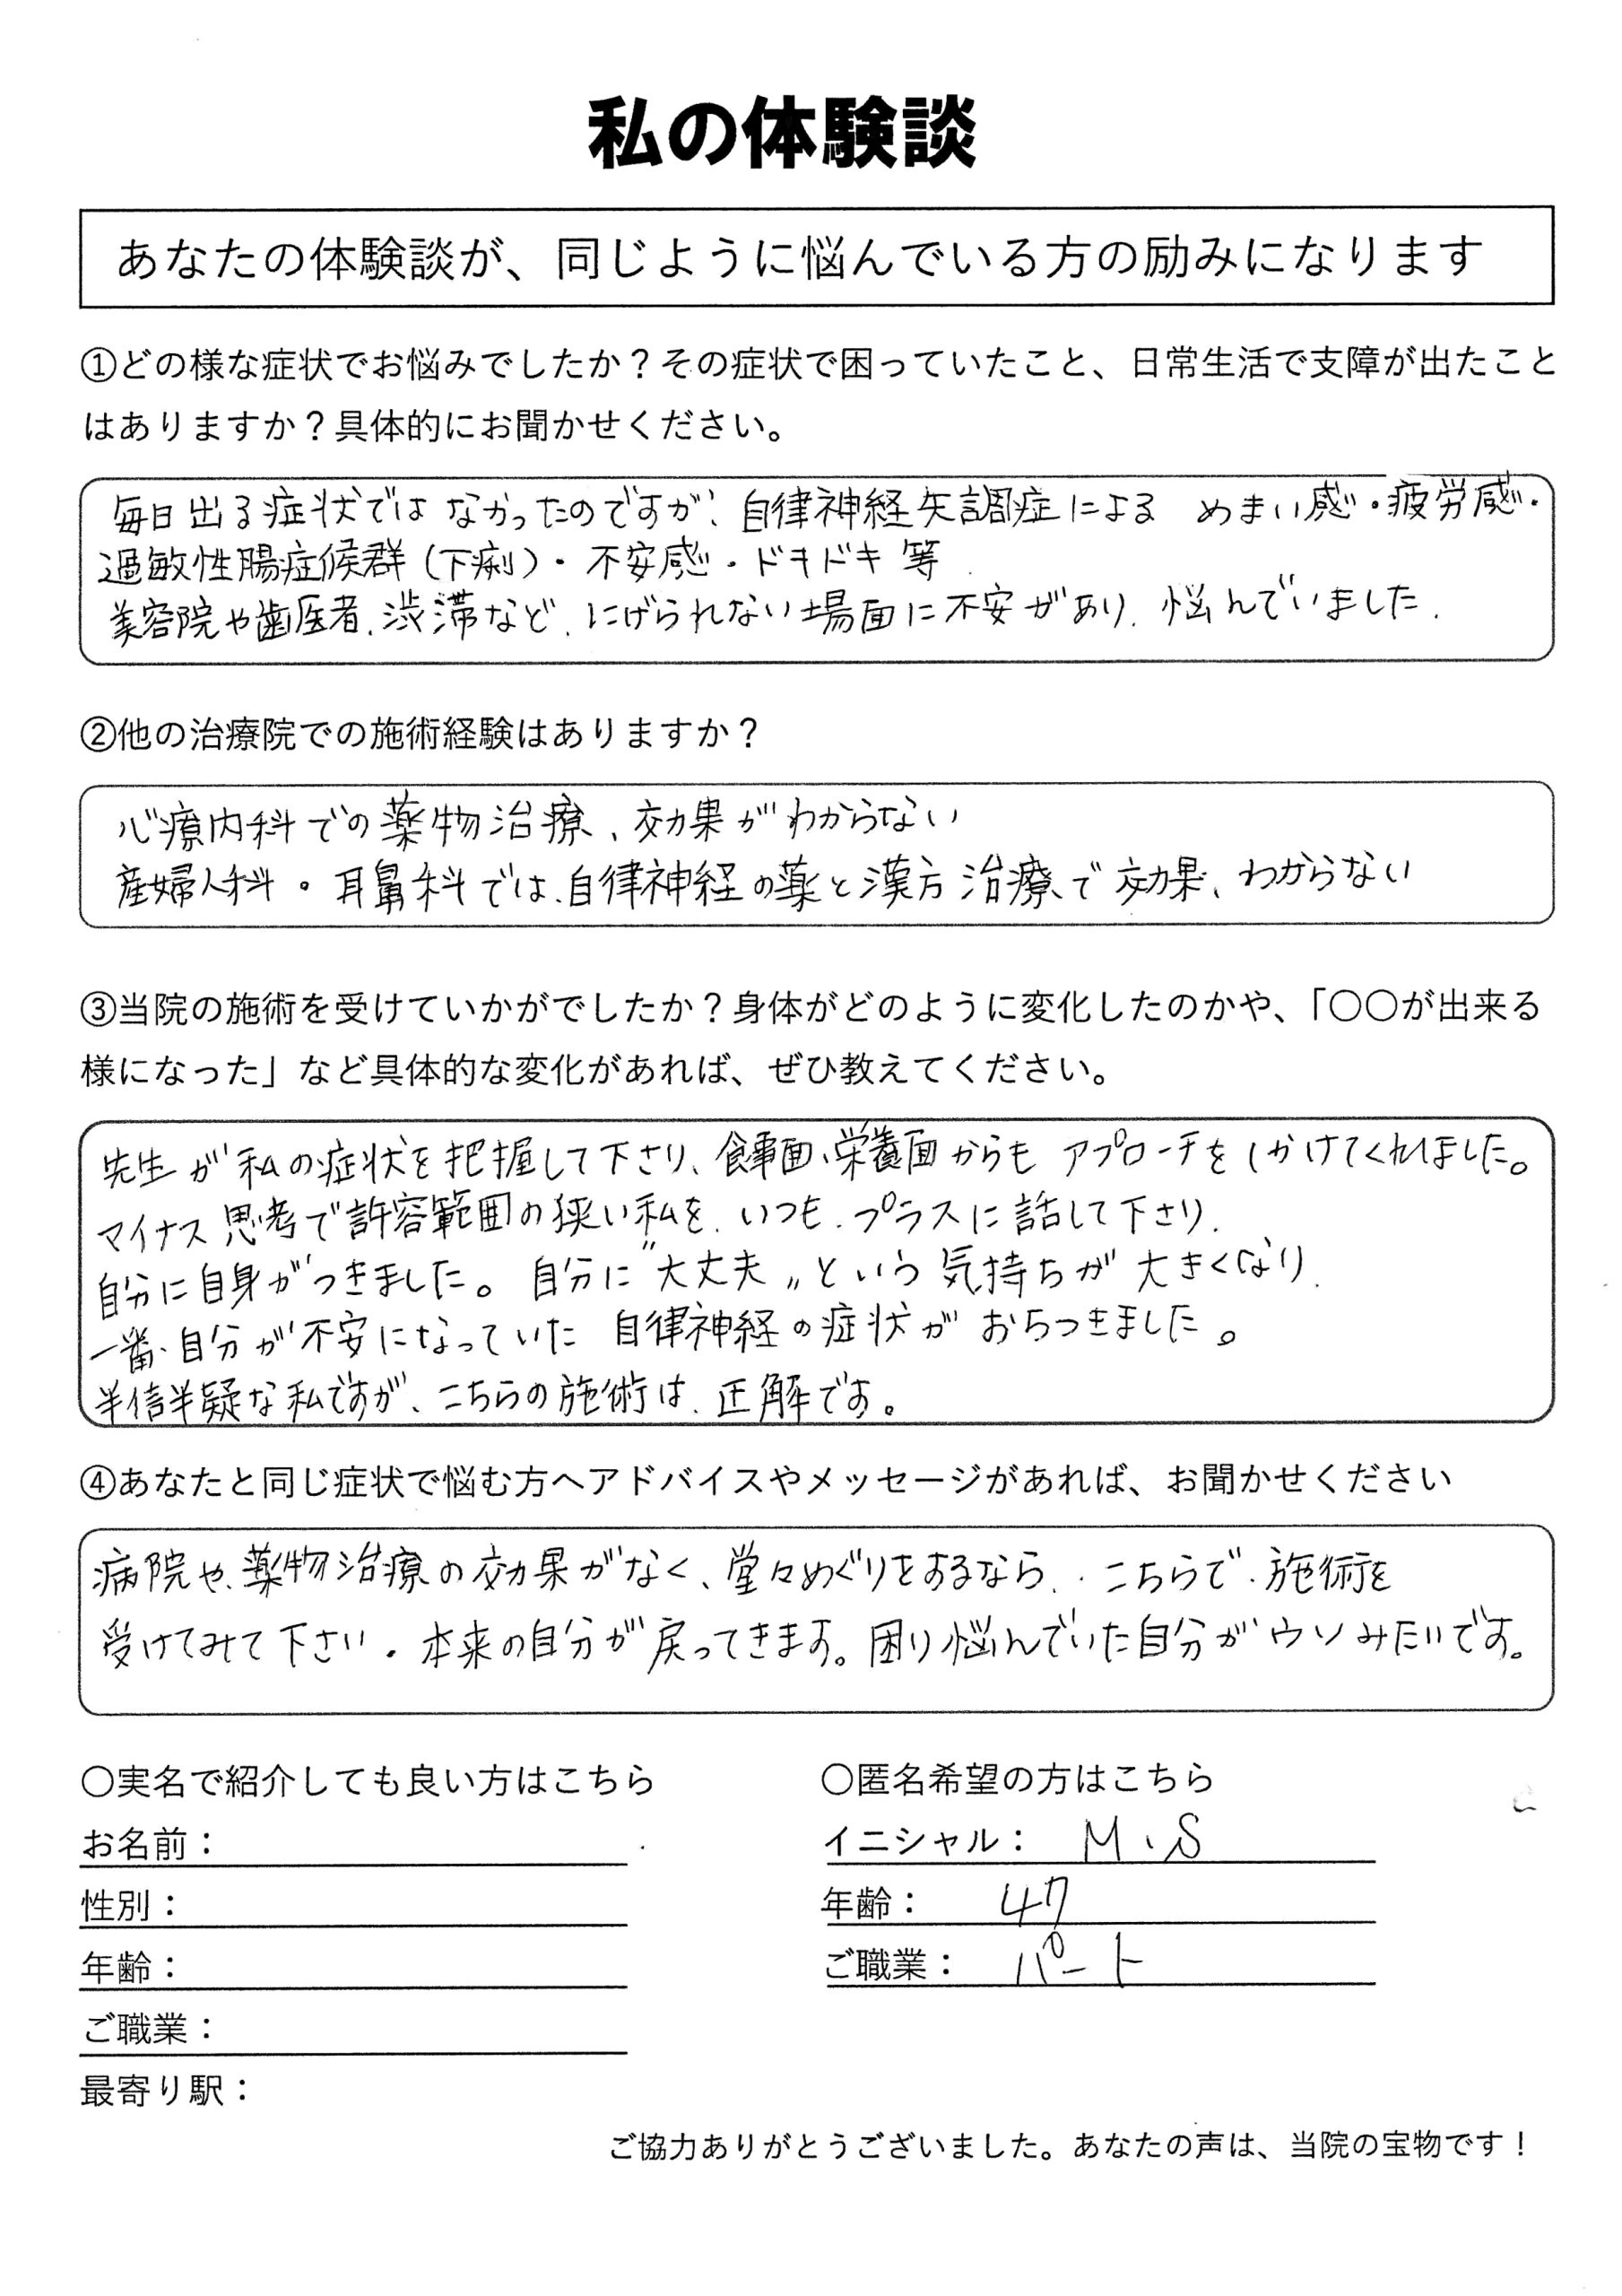 私の体験談
あなたの体験談が、同じように悩んでいる方の励みになります
①どの様な症状でお悩みでしたか？その症状で困っていたこと、日常生活で支障が出たこと
はありますか？具体的にお聞かせください。
毎日出る症状ではなかったのですが、自律神経失調症による めまい感・疲労感・
過敏性腸症候群（下痢）・不安感・ドキドキ等
美容院や歯医者、渋滞など、にげられない場面に不安があり、悩んでいました.
②他の治療院での施術経験はありますか？
心療内科での薬物治療、効果がわからない
産婦人科・耳鼻科では、自律神経の薬と漢方治療で効果、わからない
③当院の施術を受けていかがでしたか？身体がどのように変化したのかや、「○○が出来る
様になった」など具体的な変化があれば、ぜひ教えてください。
先生が私の症状を把握して下さり、食事面、栄養面からもアプローチをしかけてくれました。
マイナス思考で許容範囲の狭い私を、いつも、プラスに話して下さり、
自分に自身がつきました。自分に〝大丈夫〟という気持ちが大きくなり、
一番、自分が不安になっていた 自律神経の症状がおちつきました。
半信半疑な私ですが、こちらの施術は、正解です。
④あなたと同じ症状で悩む方へアドバイスやメッセージがあれば、お聞かせください
病院や、薬物治療の効果がなく、堂々めぐりをするなら、こちらで、施術を
受けてみて下さい。本来の自分が戻ってきます。困り悩んでいた自分がウソみたいです。
○実名で紹介しても良い方はこちら
お名前：
性別：
年齢：
ご職業：
最寄り駅：
○匿名希望の方はこちら
イニシャル： M、S
年齢： 47
ご職業： パート
ご協力ありがとうございました。あなたの声は、当院の宝物です！